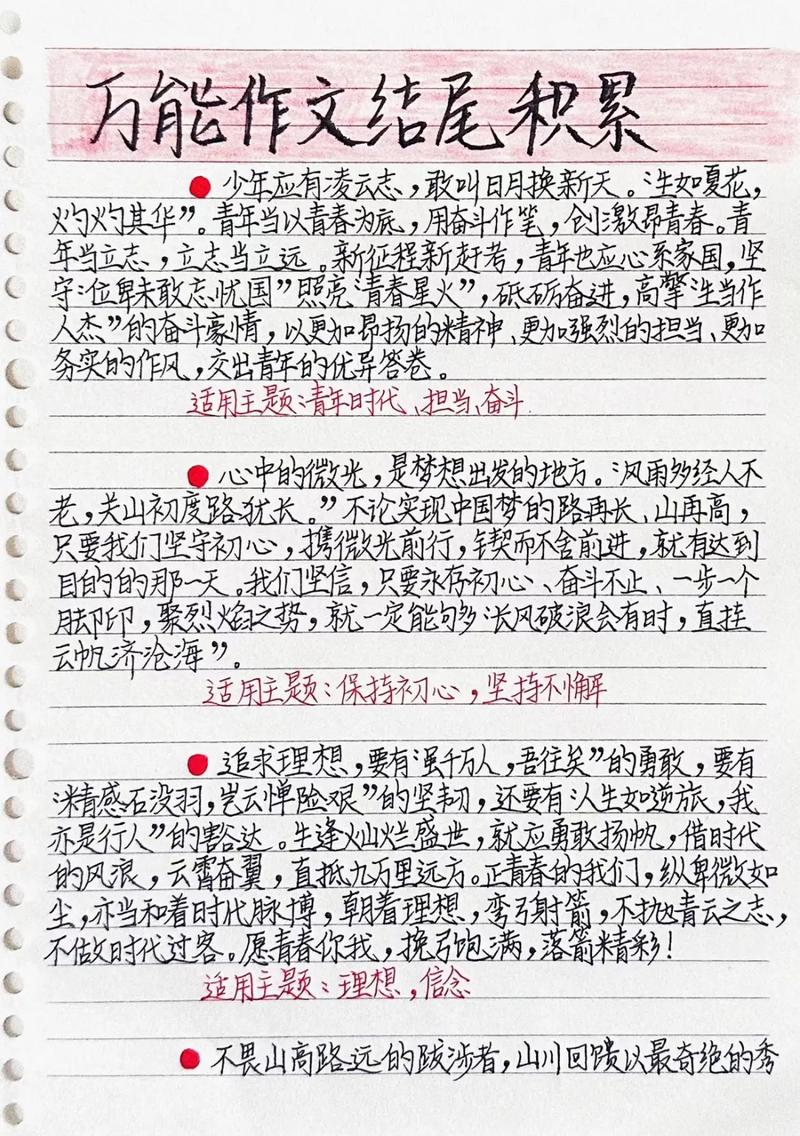 万能作文结尾积累
少年应有凌云志,敢叫日月换新天。“生如夏花,
灼灼其华”。青年当以青春为底,用奋斗作笔,创激昂青春。青
年当立志,立志当立远。新征程新赶考,青年也应心系家国,坚
守“位卑未敢忘忧国”照亮“青春星火”,砥砺奋进,高擎“生当作
人杰”的奋斗豪情,以更加昂扬的精神、更加强烈的担当、更加
务实的作风,交出青年的优异答卷。
适用主题:青年时代、担当、奋斗.
心中的微光,是梦想出发的地方。“风雨多经人不
老,关山初度路犹长。”不论实现中国梦的路再长、山再高,
只要我们坚守初心,携微光前行,锲而不舍前进,就有达到
目的的那一天。我们坚信,只要永存初心、奋斗不止、一步一个
脚印,聚烈焰之势,就一定能够“长风破浪会有时,直挂
云帆济沧海”。
适用主题:保持初心,坚持不懈
追求理想,要有“虽千万人,吾往矣”的勇敢,要有
“精感石没羽,岂云惮险艰”的坚韧,还要有“人生如逆旅,我
亦是行人”的豁达。生逢灿烂盛世,就应勇敢扬帆,借时代
的风浪,云霄奋翼,直抵九万里远方。正青春的我们,纵卑微如
尘,亦当和着时代脉搏,朝着理想,弯弓射箭,不抛青云之志,
不做时代过客。愿青春你我,挽弓饱满,落箭精彩!
适用主题:理想,信念
不畏山高路远的跋涉者,山川回馈以最奇绝的秀